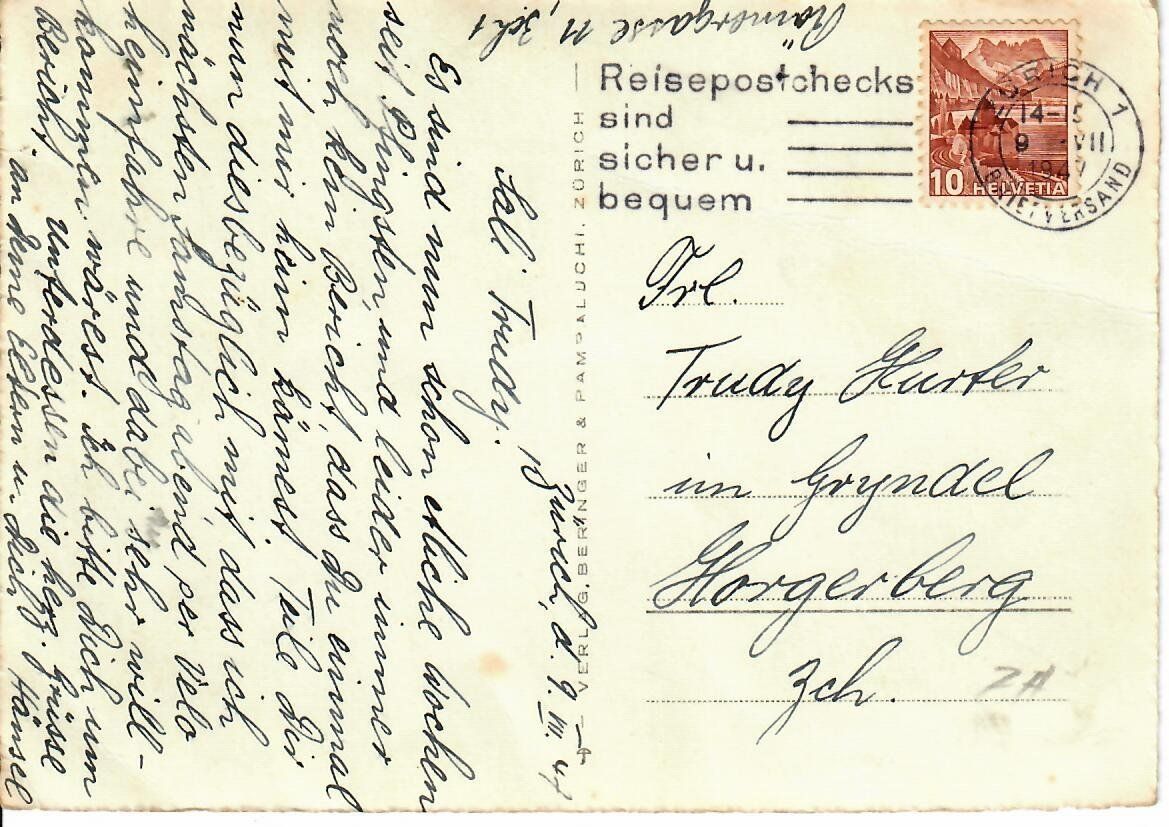 Römergasse 11, Zch 1
Zürich, d. 9. VII. 47
Sali Trudy.
Es sind nun schon etliche Wochen
seit Pfingsten, und leider immer
noch kein Bericht, dass Du einmal
mit mir heim kämest. Teile Dir
nun diesbezüglich mit, dass ich
nächsten Samstag abend per Velo
heimfahre und dabei sehr will-
kommen wärest. Ich bitte Dich um
Bericht.
Unterdessen die herz. Grüsse
an Deine Eltern u. Dich Hänsel
VERLAG. BERINGER & PAMPALUCHI. ZÜRICH
Reisepostchecks
sind
sicher u.
bequem
ZÜRICH 1
14-15
9. VII
BRIEFVERSAND
10 HELVETIA
Frl.
Trudy Hurter
im Gryndel
Horgerberg
Zch.